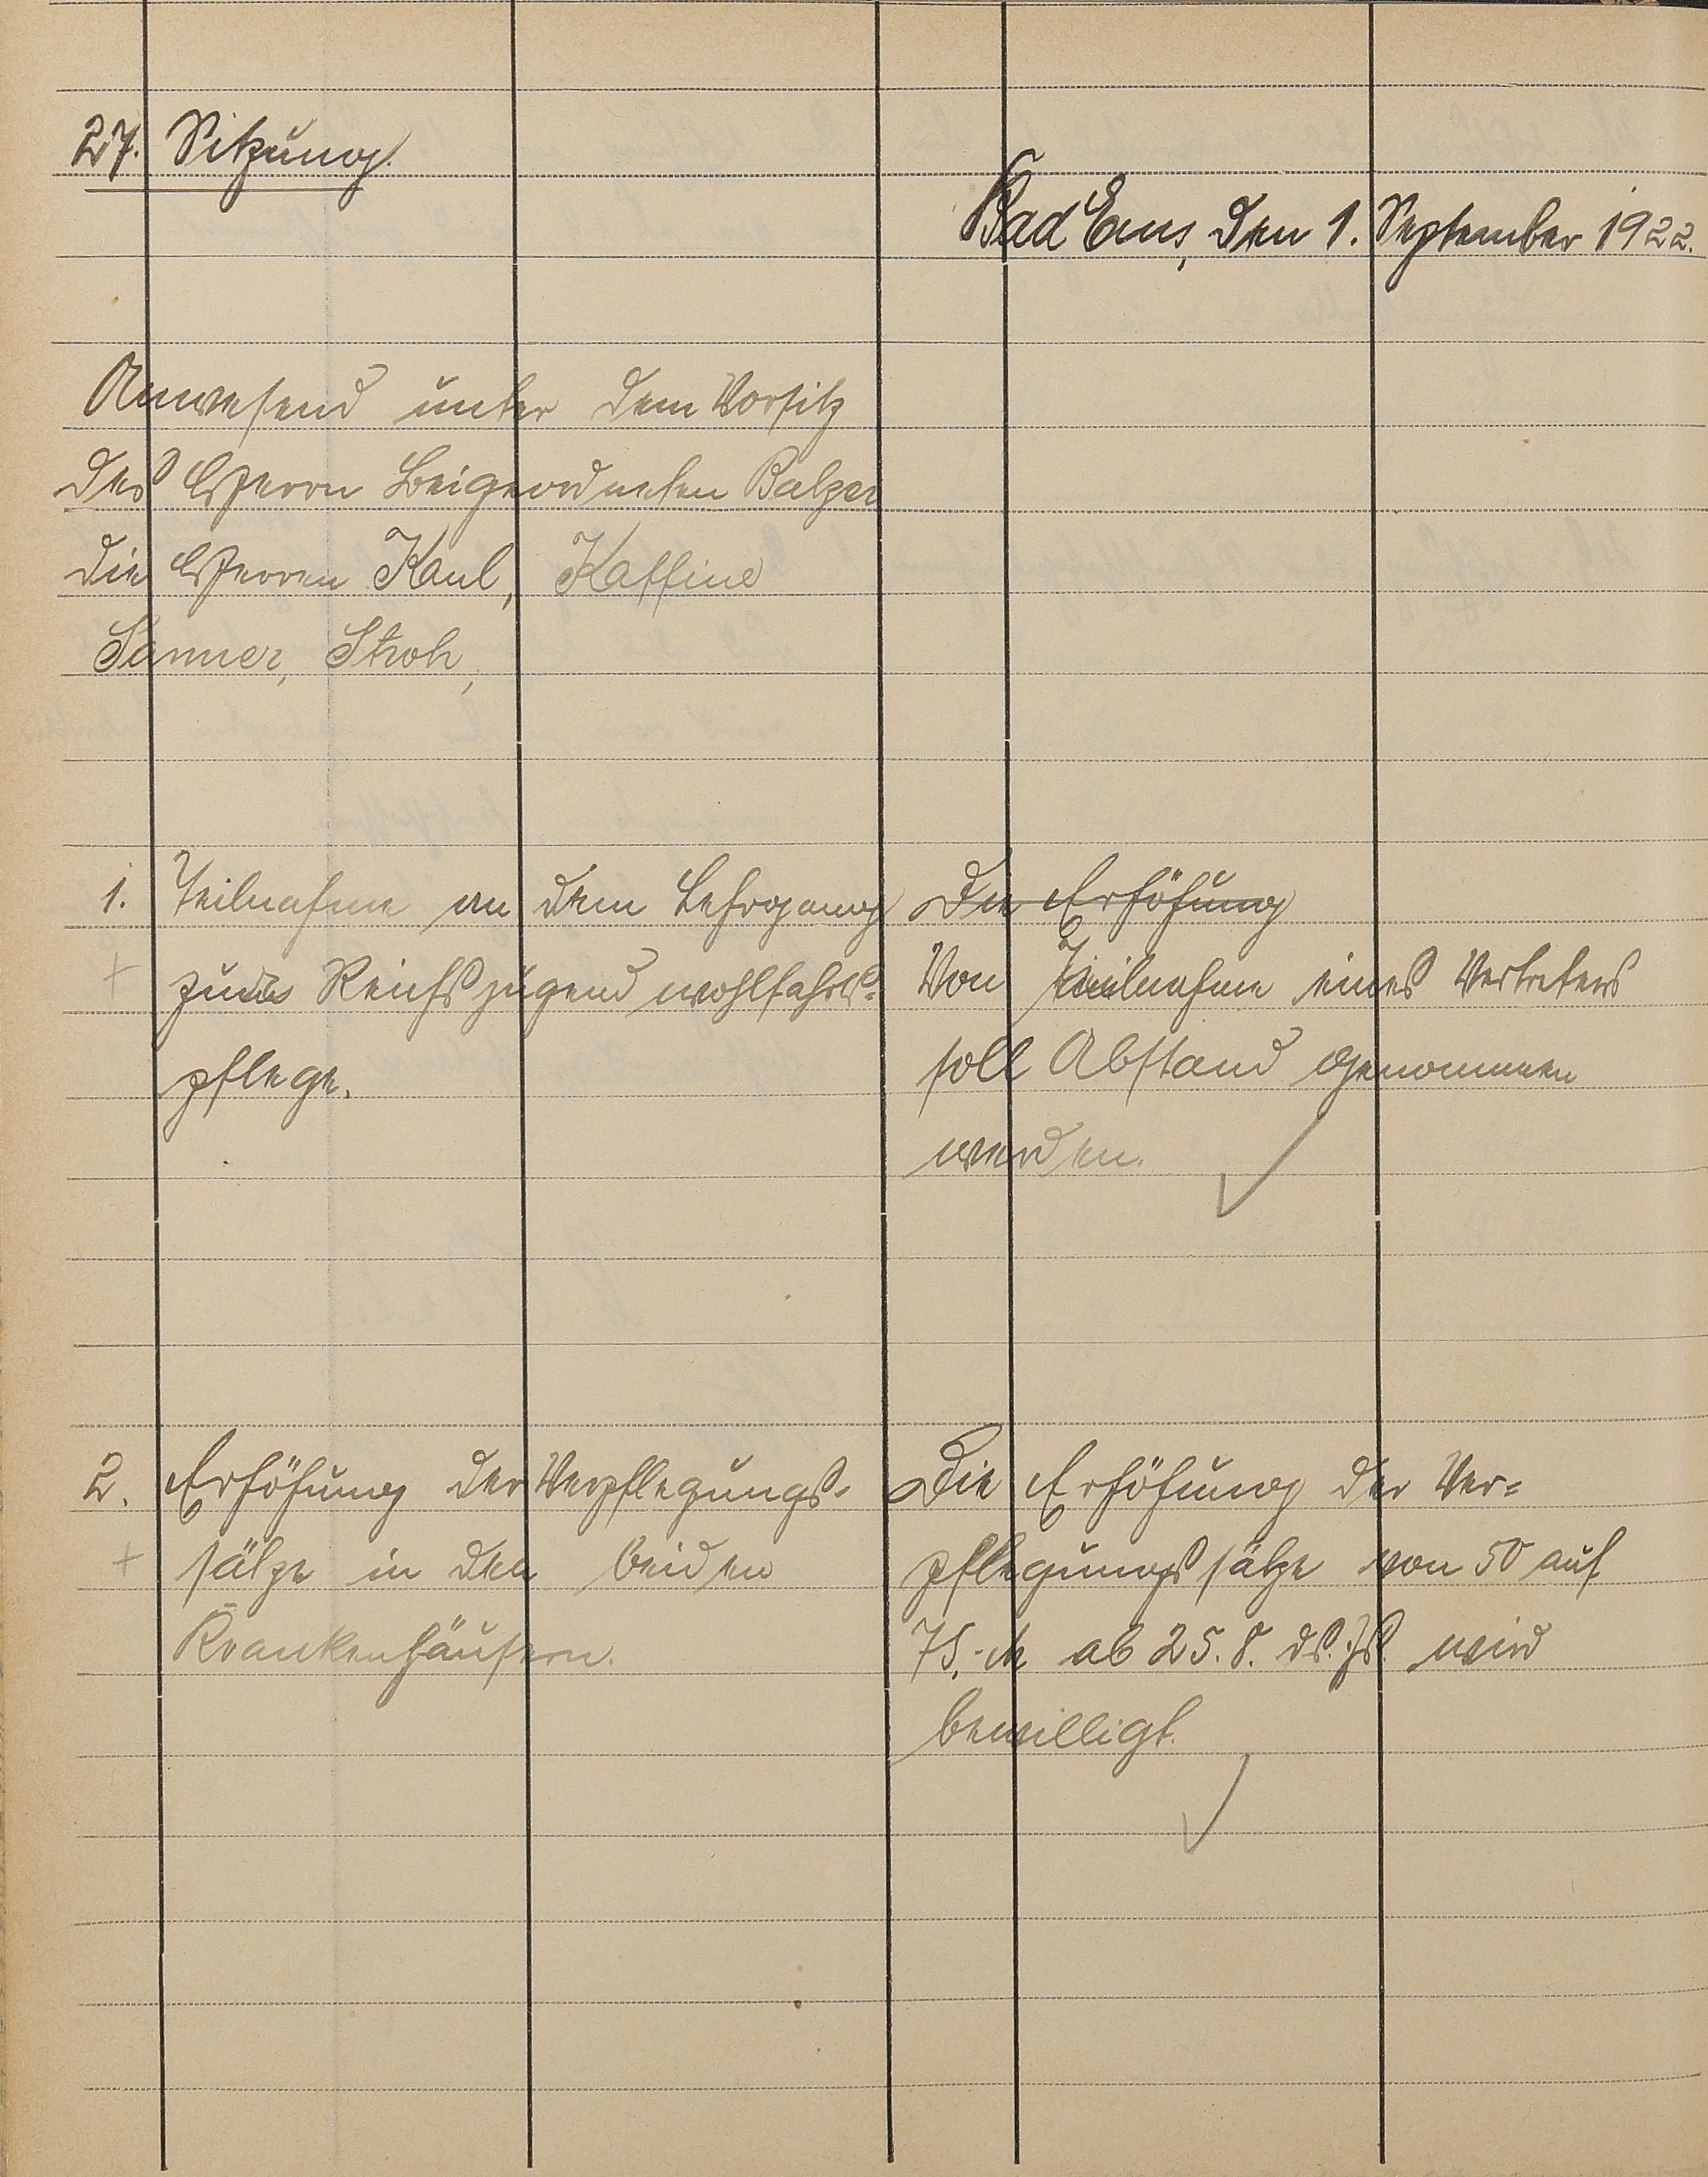 27. Sitzung.
Bad Ems, den 1. September 1922.
Anwesend unter dem Vorsitz
des Herrn Beigeordneten Balzer
die Herren Kaul, Kaffine
Sanner, Stroh,
1. Teilnahme an dem Lehrgang
zu Reichsjugendwohlfahrts-
pflege.
Die Erhöhung
Von Teilnahme eines Vertreters
soll Abstand genommen
werden.
2. Erhöhung der Verpflegungs-
sätze in den beiden
Krankenhäusern.
Die Erhöhung der Ver-
pflegungssätze von 50 auf
75,- M ab 25.8. ds. Js. wird
bewilligt.